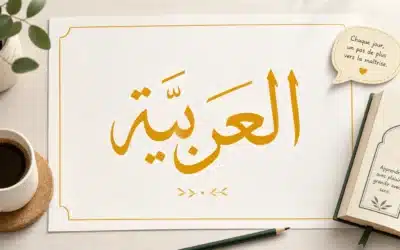 العَربيَّة
Chaque jour,
un pas de plus
vers la maîtrise.
Apprendre
avec plaisir